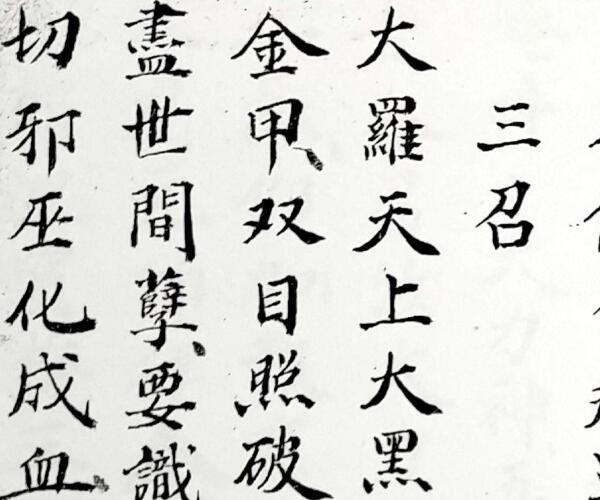 三召
大羅天上大黑
金甲双目照破
盡世間孽要識
切邪巫化成血